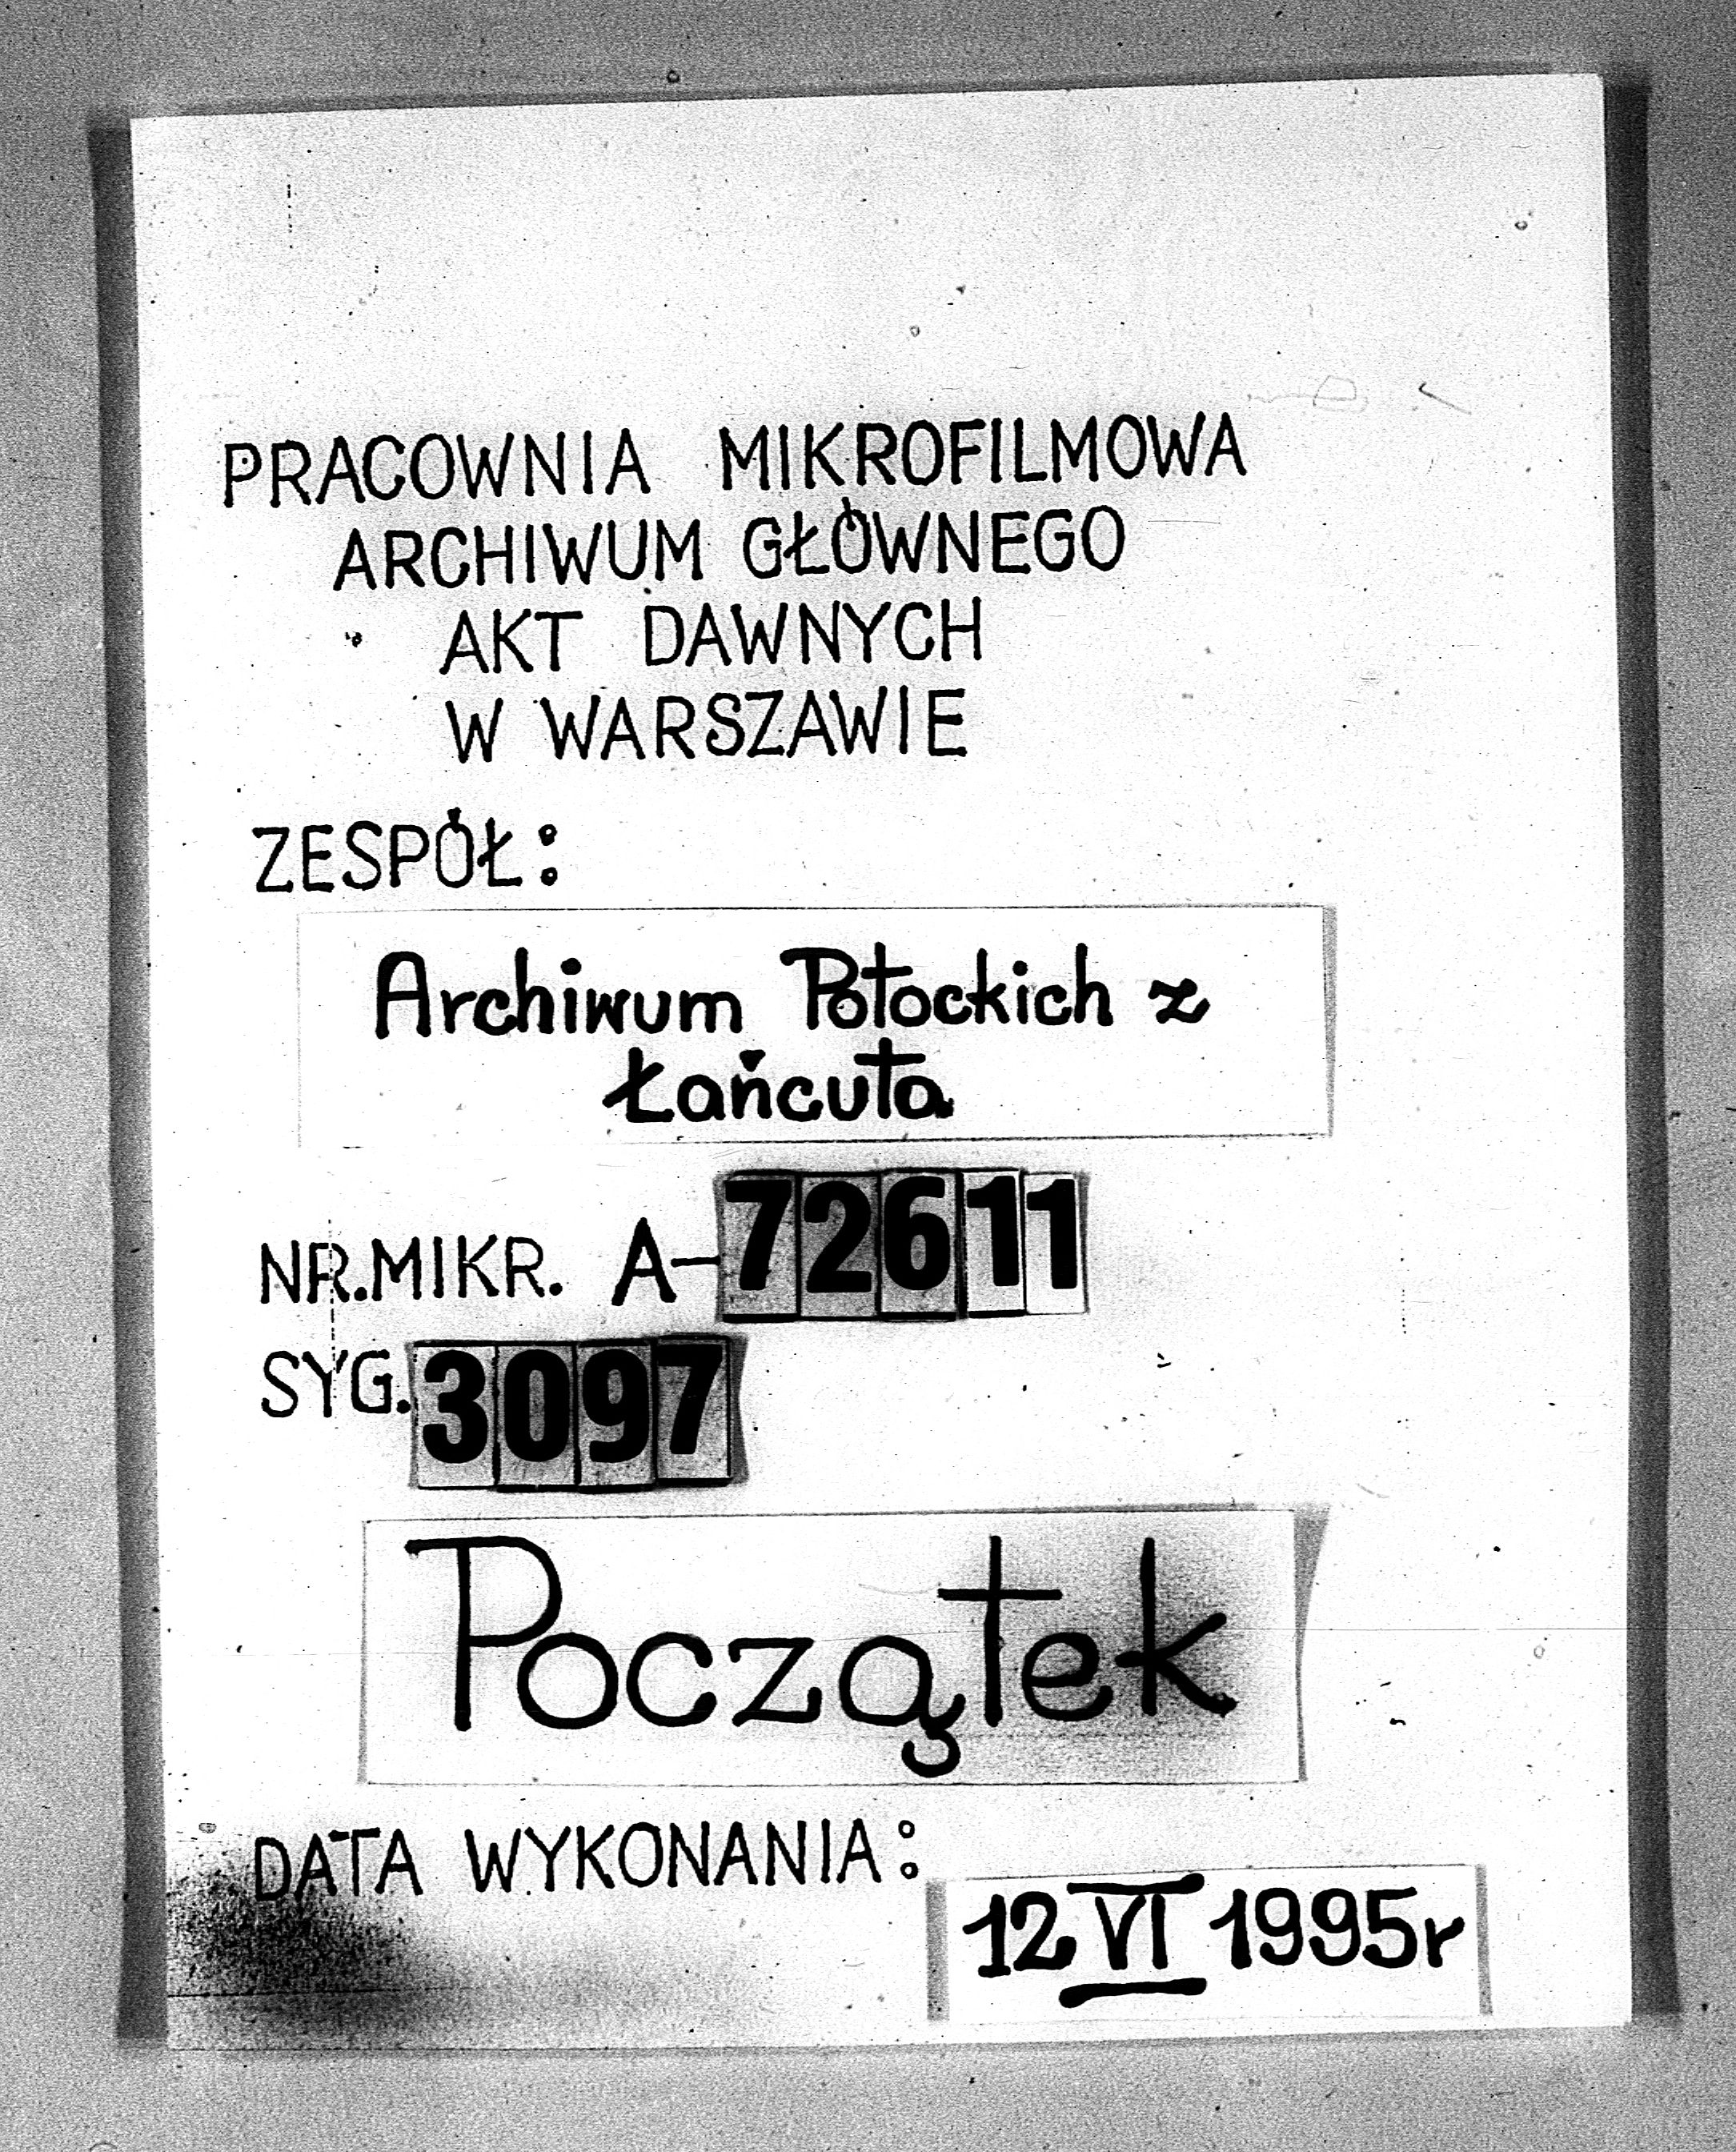 PRACOWNIA MIKROFILMOWA
ARCHIWUM GŁÓWNEGO
AKT DAWNYCH
W WARSZAWIE
ZESPÓŁ:
Archiwum Potockich z
Łańcuta
NR.MIKR. A-72611
SYG. 3097
Początek
DATA WYKONANIA:
12 VI 1995r